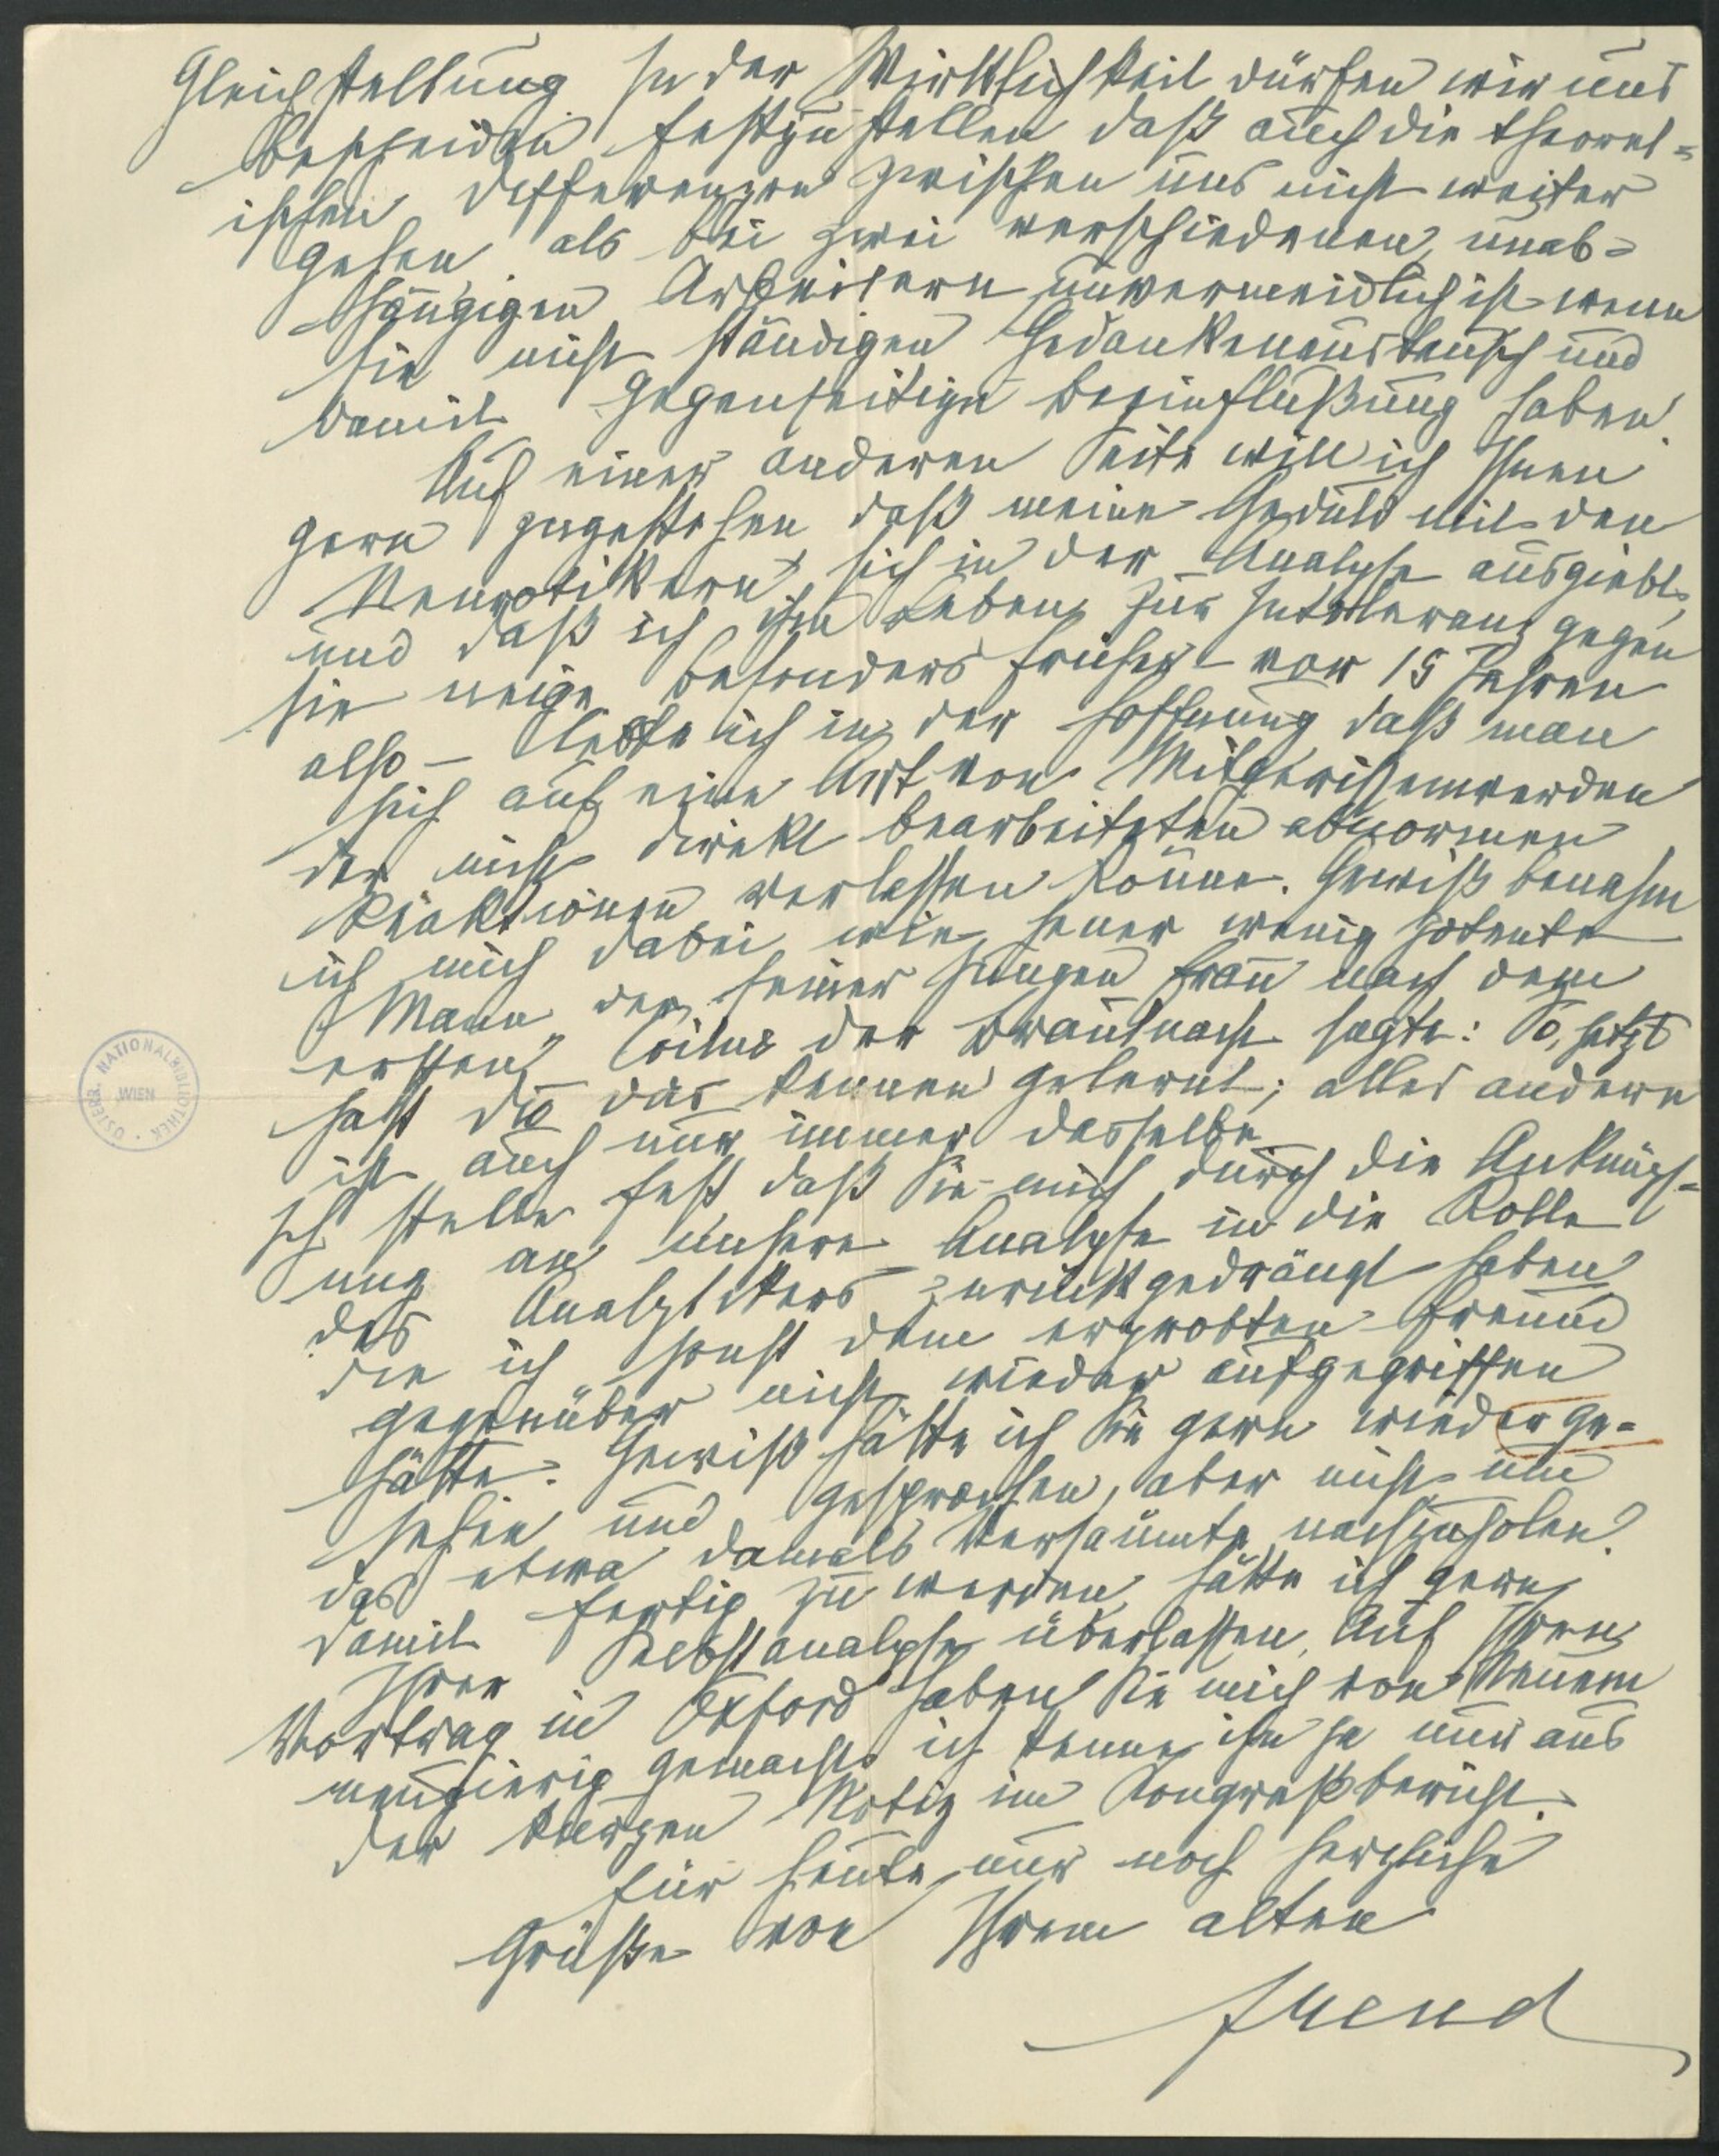 Gleichstellung. In der Wirklichkeit dürfen wir uns
bescheiden festzustellen daß auch die theoret=
ischen Differenzen zwischen uns nicht weiter
gehen als bei zwei verschiedenen, unab=
hängigen Arbeitern unvermeidlich ist wenn
sie nicht ständigen Gedankenaustausch und
damit gegenseitige Beeinflußung haben.
Auf einer anderen Seite will ich Ihnen
gern zugestehen daß meine Geduld mit den
Neurotikern sich in der Analyse ausgiebt,
und daß ich im Leben zur Intoleranz gegen
sie neige. Besonders früher – vor 15 Jahren
also – lebte ich in der Hoffnung daß man
sich auf eine Art von Mitgerissenwerden
der nicht direkt bearbeiteten abnormen
Reaktionen verlassen könne. Gewiß benahm
ich mich dabei wie jener wenig potente
Mann, der seiner jungen Frau nach dem
ersten Coitus der Brautnacht sagte: So, jetzt
hast du das kennen gelernt; alles andere
ist auch nur immer dasselbe.
Ich stelle fest, daß Sie mich durch die Anknüpf=
ung an unsere Analyse in die Rolle
des Analytikers zurückgedrängt haben,
die ich sonst dem erprobten Freund
gegenüber nicht wieder aufgegriffen
hätte. Gewiß hätte ich Sie gern wieder ge=
sehen und gesprochen, aber nicht um
das etwa damals Versäumte nachzuholen.
Damit fertig zu werden, hätte ich gern
Ihrer Selbstanalyse überlassen. Auf Ihren
Vortrag in Oxford haben Sie mich von Neuem
neugierig gemacht, ich kenne ihn ja nur aus
der kurzen Notiz im Kongreßbericht.
Für heute nur noch herzliche
Grüße von Ihrem alten
Freud
ÖSTERR. NATIONALBIBLIOTHEK
WIEN